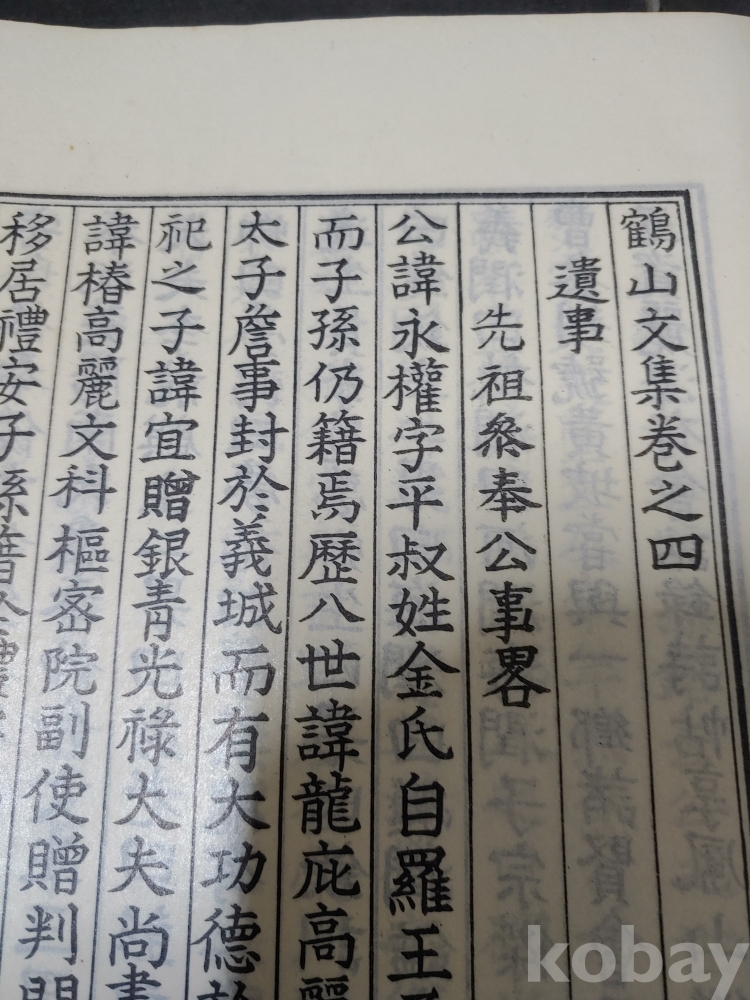 鶴山文集卷之四
遺事
先祖叅奉公事畧
公諱永權字平叔姓金氏自羅王子
而子孫仍籍焉歷八世諱龍庇高麗
太子詹事封於義城而有大功德於
祀之子諱宜贈銀青光祿大夫尚書
諱椿高麗文科樞宻院副使贈判
移居禮安子孫籍
kobay